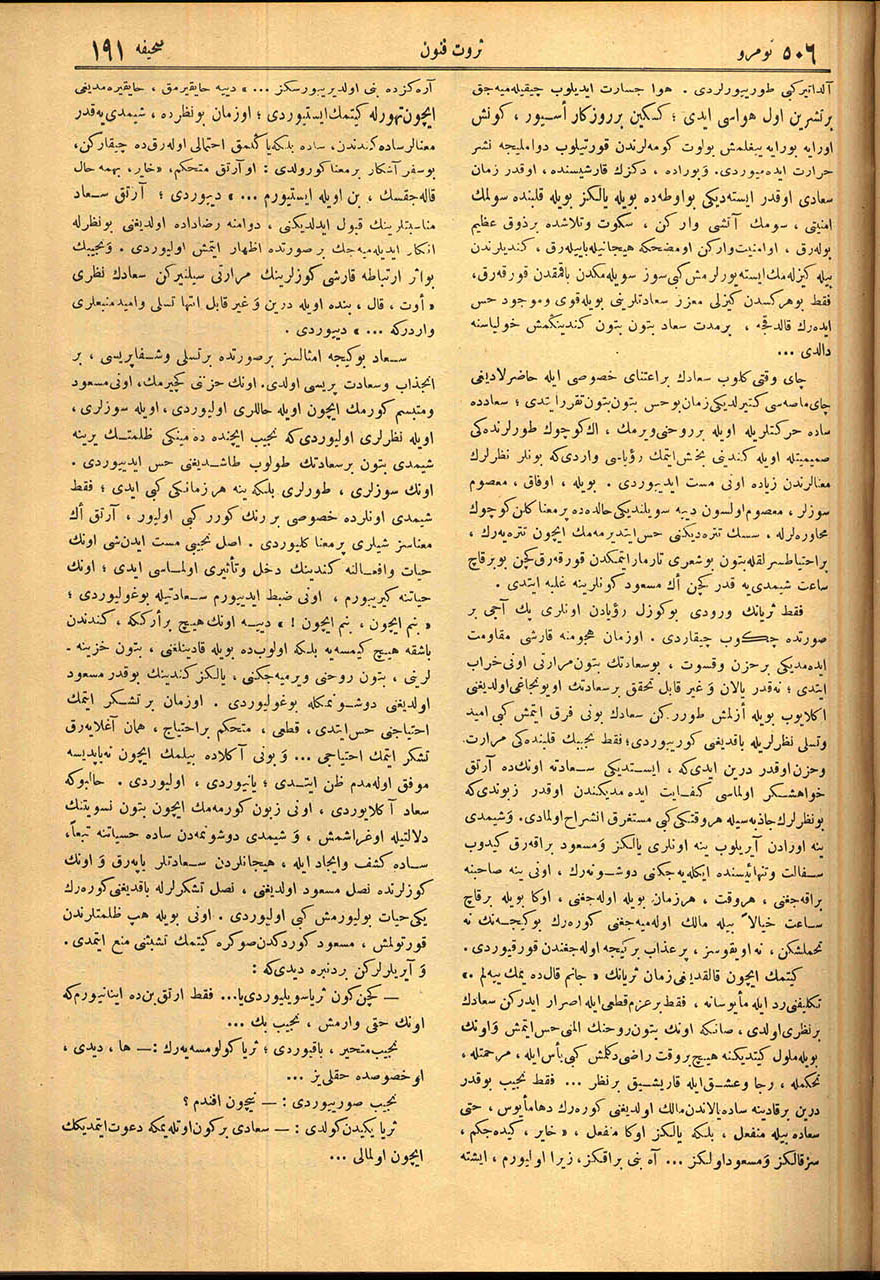 ٥٠٦ نومرو
ثروت فنون
صحیفه ١٩١
آلداتیركبی طورییورلردی . هوا جسارت ایدیلوب چیقیله میه جق
برتشرین اول هواسی ایدی ؛ كسكین برروزكار أسیور ، كونش
اورایه بورایه ییغلمش بولوت كومه لرندن قورتیلوب دوا ملیجه نشر
حرارت ایده میوردی . وَبوراده ، دكزك قارشیسنده ، اوقدر زمان
سعادی اوقدر ایسته دیكی بواوطه ده بویله یالكز بویله قلبنده سولمك
امنیتی ، سومك آتشی وار كن ، سكوت وتلاشده برذوق عظیم
بوله رق ، اوامنیت واركن اومضحكه هیجانیله بایيله رق ، كندیلرندن
بیله كیزله مك ایسته یورلرمش كبی سوز سویله مكدن باقمقدن قورقه رق،
فقط بوهركسدن كیزلی معزز سعادتلرینی بویله قوی وموجود حس
ایده رك قالدقجه ، برمدت سعاد بتون بتون كندینكمش خولیاسنه
دالدی ...
چای وقتی كلوب سعادك براعتنای خصوصی ایله حاضرلادیغی
چای ماصه سی كتیرلدیكی زمان بو حس بتون بتون تقررایتدی ؛ سعادده
ساده حركتلریله اویله برروحنی ویرمك ، اك كوچوك طورلرنده كی
صمیمیتله اویله كندینی بخش ایتمك رؤیاسی واردی كه بونلر نظرلرك
معنالرندن زیاده اونی مست ایدییوردی . بویله ، اوفاق ، معصوم
سوزلر ، معصوم اولسون دییه سویلندیكی حالده ده پرمعنا كلن كوچوك
محاوره لرله ، سسك تتره دیكنی حس ایتدیرمه مك ایچون تتره یه رك ،
براحتیاطسزلقله بتون بوشعری تارمار ایتمكدن قورقه رق كچن بو برقاچ
ساعت شیمدی یه قدر كچن أك مسعود كونلرینه غلبه ایتدی .
فقط ثریانك ورودی بوكوزل رؤیادن اونلری پك آجی بر
صورتده چكوب چیقاردی . اوزمان هجومنه قارشی مقاومت
ایده مدیكی برحزن وقسوت ، بوسعادتك بتون مرارتی اونی خراب
ایتدی ؛ نه قدر یالان وَغیر قابل تحقق برسعادتك اویونجاغی اولدیغنی
اكلایوب بویله أزلمش طوررکن سعادك بونی فرق ایتمش كبی امید
وتسلی نظرلریله باقدیغنی كورییوردی؛ فقط نجیبك قلبنده كی مرارت
وحزن اوقدر درین ایدی كه ، ایستدیكی سعادته اونك ده آرتق
خواهشكر اولماسی كفایت ایده مدیكندن اوقدر زبوندی كه
بونظرلرك جاذبه سیله هروقتكی كبی مستغرق انشراح اولمادی. وَشیمدی
ینه اورادن آیریلوب ینه اونلری یالكز وَمسعود براقه رق كیدوب
سفالت وتنهائیسنده ایكله یه جكنی دوشونه رك ، اونی ینه صاحبنه
براقه جغنی ، هروقت ، هرزمان بویله اوله جغنی ، اوكا بویله برقاچ
ساعت خیالاً بیله مالك اوله میه جغنی كوره رك بوكیجه نك نه
تحملشكن ، نه اویقوسز ، پرعذاب بركیجه اوله جغندن قورقیوردی.
كیتمك ایچون قالقدیغی زمان ثریانك « جانم قال ده یمك ییه لم .»
تكلیفنی رد ایله مأیوسانه ، فقط برعزم قطعی ایله اصرار ایدركن سعادك
برنظری اولدی ، صانكه اونك بتون روحنك المنی حس ایتمش وَاونك
بویله ملول كیتدیكنه هیچ بروقت راضی دكلمش كبی یأس ایله ، مرحمتله ،
تحكمله ، رجا وعشق ایله قاریشیق برنظر ... فقط نجیب بوقدر
درین برقادینه ساده یالاندن مالك اولدیغنی كوره رك دهامأیوس ، حتی
سعاده بیله منفعل ، بلكه یالكز اوكا منفعل ، « خایر ، كیده جكم ،
سزقالكز وَمسعود اولكز ... آه بنی براقكز، زیرا اولیورم ، ایشته
آره كزده بنی اولدیرییورسكز ... » دییه حایقیرمق ، حایقیره مدیغی
ایچون تهورله كیتمك ایستیوردی ؛ اوزمان بونظرده ، شیمدی یه قدر
معنالرساده كندندن، ساده بلكه یاكلمق احتمالی اوله رق ده چیقاركن،
بوسفر آشكار برمعنا كورولدی : اوآرتق متحكم، « خایر، بهمه حال
قاله جقسك ، بن اویله ایستیورم ... » دییوردی ؛ آرتق سعاد
مناسبتلرینك قبول ایدلدیكنی ، دوامنه رضاداده اولدیغنی بونظرله
انكار ایدیله میه جك برصورتده اظهار ایتمش اولیوردی . وَنجیبك
بواثر ارتباطه قارشی كوزلرینك مرارتی سیلنیركن سعادك نظری
« أوت ، قال ، بنده اویله درین وَغیر قابل انتها تسلی وامیدمنبعلری
واردركه ... » دییوردی .
سعاد بوكیجه امثالسز برصورتده برتسلی وشفاپریسی ، بر
انجذاب وسعادت پریسی اولدی. اونك حزننی كچیرمك، اونی مسعود
ومتبسم كورمك ایچون اویله حاللری اولیوردی، اویله سوزلری ،
اویله نظرلری اولیوردی كه نجیب ایچنده ده مینكی ظلمتك یرینه
شیمدی بتون برسعادتك طولوب طاشدیغنی حس ایدییوردی .
اونك سوزلری ، طورلری بلكه ینه هرزمانكی كبی ایدی ؛ فقط
شیمدی اونلرده خصوصی بررنك كورر كبی اولیور ، آرتق أك
معناسز شیلری پرمعنا كلیوردی . اصل نجیبی مست ایدن شی اونك
حیات واقعالنه كندینك دخل وتأثیری اولماسی ایدی ؛ اونك
حیاتنه كیرییورم ، اونی ضبط ایدییورم سعادتیله بوغولیوردی ؛
« بنم ایچون ، بنم ایچون ! » دییه اونك هیچ برأرككه ، كندندن
باشقه هیچ كیمسه یه بلكه اولوب ده بویله قادینلغنی ، بتون خزینه -
لرینی ، بتون روحنی ویرمیه جكنی ، یالكز كندینك بوقدر مسعود
اولدیغنی دوشونمكله بوغولیوردی . اوزمان برتشكر ایتمك
احتیاجنی حس ایتدی ، قطعی ، متحكم براحتیاج ، همان آغلایه رق
تشكر ایتمك احتیاجی ... وَبونی آكلاده بیلمك ایچون نه یاپدیسه
موفق اوله مدم ظن ایتدی ؛ یانیوردی ، اولیوردی . حالبوكه
سعاد آكلایوردی ، اونی زبون كورمه مك ایچون بتون نسویتنك
دلالتیله اوغراشمش ، وَشیمدی دوشونمه دن ساده حسیاتنه تبعاً،
ساده كشف وایجاد ایله ، هیجانلردن سعادتلر یاپه رق وَاونك
كوزلرنده نصل مسعود اولدیغنی ، نصل تشكرلرله باقدیغنی كوره رك
یكی حیات بولیورمش كبی اولیوردی . اونی بویله هپ ظلمتلرندن
قورتولمش ، مسعود كوردكدن صوكره كیتمك تشبثنی منع ایتمدی .
وَآیریلرلركن بردنبره دیدی كه :
— كچن كون ثریا سویلیوردی یا... فقط ارتق بن ده اینانیورم كه
اونك حقی وارمش ، نجیب بك ...
نجیب متحیر ، باقیوردی ؛ ثریا كولومسه یه رك : — ها ، دیدی ،
اوخصوصده حقلی یز ...
نجیب صورییوردی : — نیچون افندم ؟
ثریا یكیدن كولدی : — سعادی بركون اوتله یمكه دعوت ایتمدیكك
ایچون اولمالی ...